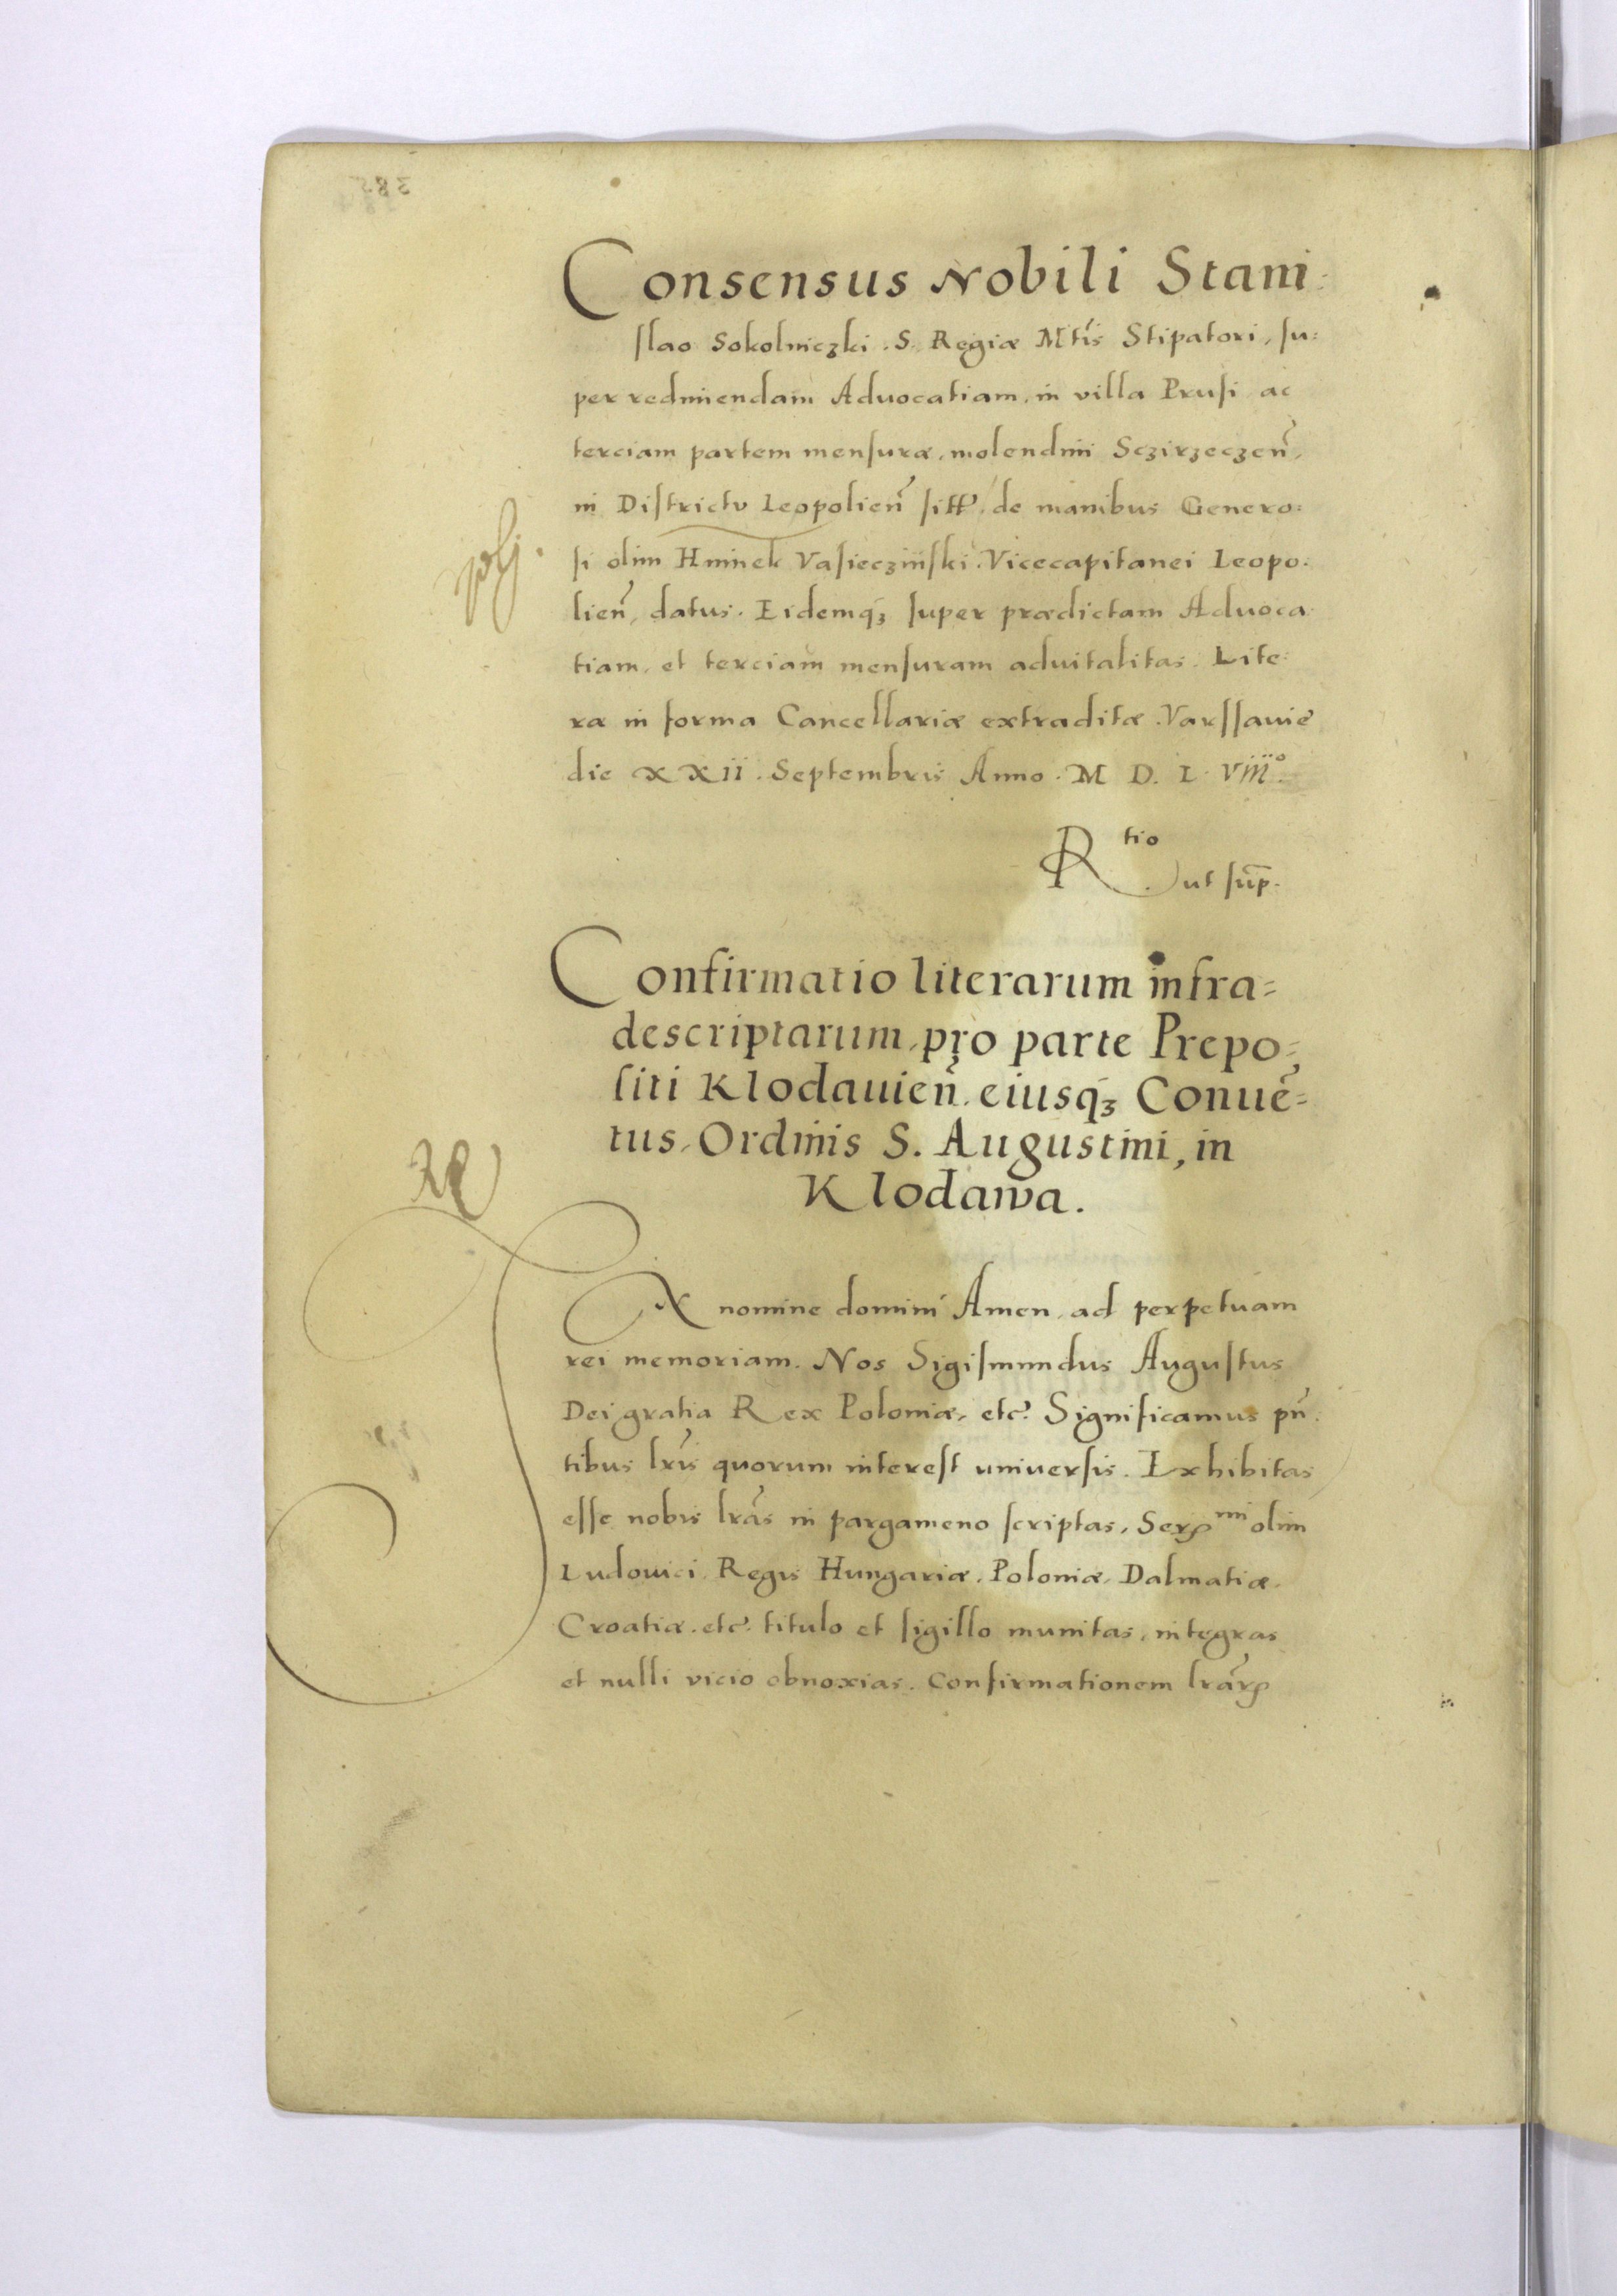 Consensus Nobili Stani:
slao Sokolniczki. S. Regiæ Mtis Stipatori, su:
per redimendam Aduocatiam, in villa Prusi ac
terciam partem mensuræ, molendini Sczirzeczen̄,
in Districtu Leopolien̄ sitt̄, de manibus Genero:
si olim Hminek Vasieczinski. Vicecapitanei Leopo:
lien̄, datus. Eidemqꝫ super prædictam Aduoca
tiam, et terciam mensuram aduitalitas. Lite:
ræ in forma Cancellariæ extraditæ. Varssauie
die XXII. Septembris Anno. M D. L. Viiiº.
Rtio
ut sup̄.
Confirmatio literarum infra=
descriptarum, pro parte Prepo=
siti Klodauien̄. eiusqꝫ Conuē=
tus, Ordinis S. Augustini, in
Klodawa.
IN nomine domini Amen, ad perpetuam
rei memoriam. Nos Sigismundus Augustus
Dei gratia Rex Poloniæ, etc. Significamus pn̄:
tibus lr̄is quorum interest uniuersis. Exhibitas
esse nobis lr̄as in pargameno scriptas, Serꝫmi olim
Ludouici, Regis Hungariæ, Poloniæ, Dalmatiæ,
Croatiæ. etc. titulo et sigillo munitas, integras
et nulli vicio obnoxias. Confirmationem lr̄arꝫ